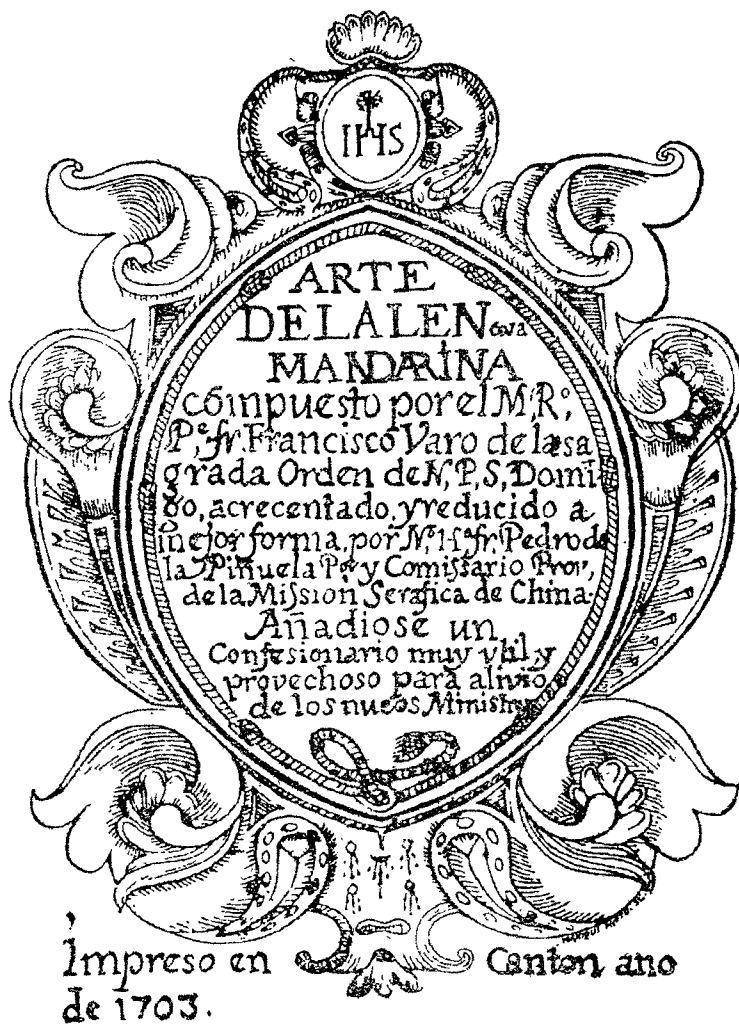 IHS
ARTE
DE LA LENGUA
MANDARINA
compuesto por el M, R°,
P,e fr. Francisco Varo de la sa
grada Orden de N, P, S, Domi-
go, acrecentado, y reducido a
mejor forma, por N° H° fr. Pedro de
la Piñuela Por y Comissario Prov,
de la Mission Serafica de China.
Añadiose un
Confesionario muy vtil, y
provechoso para alivio
de los nueos Ministros
Impreso en Canton ano
de 1703.